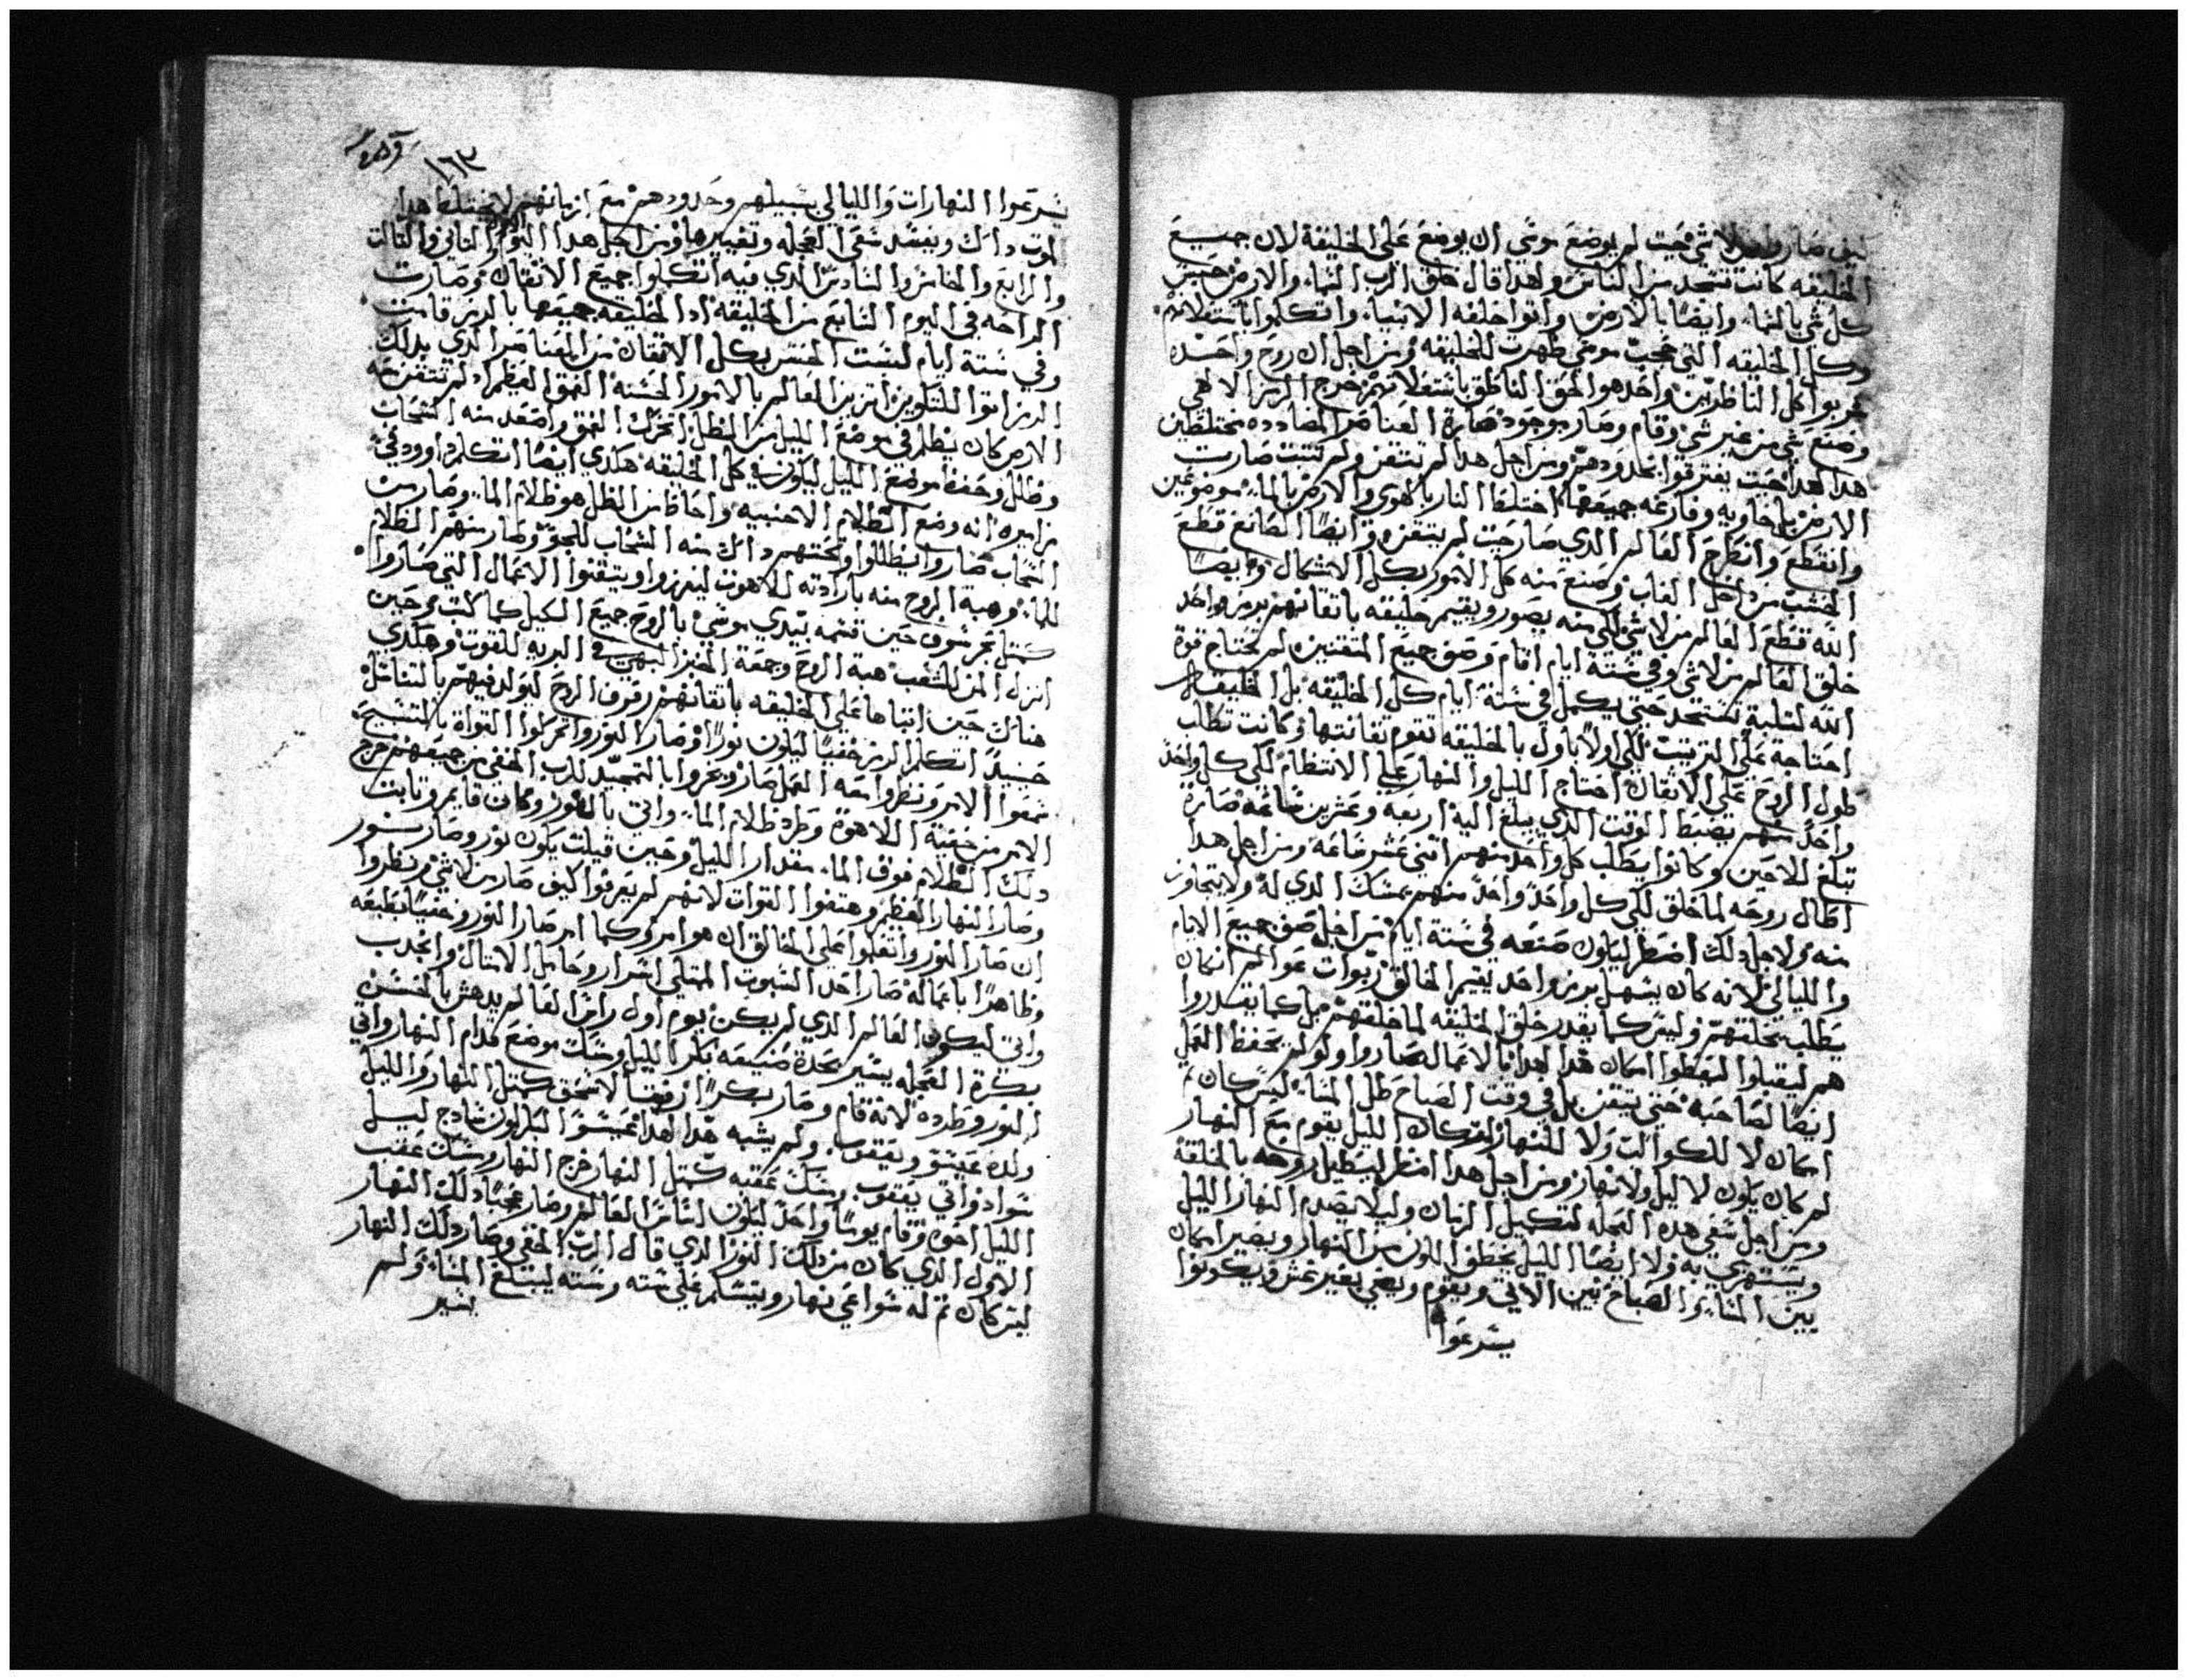 كيف صاروا من لاشي حيت لم يوضع موسى ان يوضع على الخليقة لان جميع
الخليقه كانت تسجد من الناس ولهدا قال خلق الرب السماء والارض حيين
كل شي بالسما وايضا بالارض واتوا خلفه الانبياء واتكلموا باشتعلانهم
وكل الخليقه التي عجب موسى ظهرت للخليقه ومن اجل ان روح واحده
كل الناظرين واحد هو الحق الناطق باشتعلانهم خرج الرمز الالاهي
وصنع شي من غير شي وقام وصار بوجود صارة العناصر المضادده مختلطين
هدا لهدا حيت يفترقوا بحدودهم ومن اجل هدا لم تتقن ولم تتبت صارت
الارض خاويه وفارغه جميعها اختلط النار بالهوى والارض بالما موضوعين
وانقطع وانطرح العالم الدي صار حيت لم يتقن وايضا الصانع قطع
الخشب من داخل الغاب وصنع منه كل الامور بكل الاشكال وايضا
الله قطع العالم من لاشي لكي منه يصور ويقيم خليقه باتقانهم برمز واحد
خلق العالم من لاشي وفي ستة ايام اقام وصف جميع المتقنين لم تحتاج قوة
الله لتلبة تستجد حتى يكمل في ستة ايام كل الخليقه بل الخليقه
احتاجة على الترتيب لكي اولا باول بالخليقه تقوم تقانتها وكانت تطلب
طول الروح على الاتقان احتاج الليل والنهار على الانتظام لكي كل واحد
واحد منهم يضبط الوقت الدي يبلغ اليه اربعه وعشرين ساعه صارة
تبلغ للاحين وكانوا يطلب كل واحد منهم اتنى عشر ساعه ومن اجل هدا
اطال روحه لما خلق لكي كل واحد واحد منهم يمسك الدي له ولا يتجاوز
منه ولاجل دلك اضطر ليكون صنعه في ستة ايام من اجل صف جميع الايام
والليالي لانه كان يسهل برمز واحد يقيم الخالق ربوات عوالم ان كان
يطلب بخلقتهم وليس كما يقدر خلق الخليقه لما خلقهم بل كما يقدروا
هم ليقبلوا ليعطوا امكان هدا لهدا بالاعمال صاروا ولو لم يحفظ العمل
ايضا لصاحبه حتى يتقن بل في وقت الصباح ظل المسا ليس كان تم
امكان لا للكواكب ولا للنهار لو كان الليل يقوم مع النهار
لم كان يكون لا ليل ولا نهار ومن اجل هدا اضطر ليطيل روحه بالخلقة
ومن اجل سعي هده العجله لتكميل الزمان وليلا يصدم النهار الليل
ويستهزي به ولا ايضا الليل يخطف اللون من النهار ويصير امكان
بين المسا والصباح بين الاتي ويقوم ويمضي بغير غش ويكونوا
يسرعوا
١٦٣
يسرعوا النهارات والليالي بسبيلهم وحدودهم مع ازمانهم لا يختلط هدا
لموت داك ويفسد سعي العجله وتغييرها ومن اجل هدا اليوم الاول والتاني والتالت
والرابع والخامس والسادس الدي فيه اتكملوا جميع الاتقان وصارت
الراحه في اليوم السابع من الخليقه ادا الخليقه جميعها بالرمز قامت
وفي ستة ايام لبست الحسن بكل الاتقان من العناصر الدي بدلك
الرمز اتوا للتكوين اتزين العالم بالامور الحسنه العمق العظم اد لم تتقن معه
الارض كان يظلم في موضع الليل من الظل اتحرك العمق واصعد منه السحاب
وظلل وحفظ موضع الليل ليكون في كل الخليقه هكدي ايضا اتكلم داوود في
مزاميره انه وضع الظلام الاحتبيه واحاط من الظل هو ظلام الما وصارت
السحاب صاروا ليظللوا وتحتهم داك منه السحاب للجو وطار منهم الظلام
للما وهبة الروح منه بارادته للاهوت ليفرزوا ويتقنوا الاعمال التي صاروا
كمتل بحر سوف حين قسمه بيدي موسى بالروح جميع الليل كما كتب وحين
انزل المن للشعب هبة الروح وجمعة الخبز البهي في البريه للقوت وهكدي
هناك حين ابتداها على الخليقه باتقانهم رفرف الروح ليولد فيهم بالتناسل
حينيدا اتكلم الرمز خفيا ليكون نورا وصار النور واتحركوا القواة بالتسبيح
سمعوا الامر ونظروا معه العمل صار وزعزوا بالتمجيد للرب الخفي من جميعهم خرج
الامر من خفية اللاهوة وطرد ظلام الما واتى بالنور وكان قايم وتابت
دلك الظلام فوق الما مقدار الليل وحين قيلت يكون نور وصار نور
وصار النهار العظيم وهتفوا القوات لانهم لم يعرفوا كيف صار من لاشي ونظروا
ان صار النور واتعلموا على الخالق ان هو امر وكما امر صار النور وخفيا بطبعه
وظاهرا باعماله صار احد السبوت الممتلي اسرار وحامل الامتال وانجدب
واتى ليكون العالم الدي لم يكن يوم اول راس العالم يدهش بالحسن
بكرة العجله يسير بحدة صنيعه بكر الليل وسك موضع قدام النهار واتى
النور وطرده لانه قام وصار بكرا ارفقا لاسحق كمتل النهار والليل
ولده عيسو ويعقوب ولم يشبه هدا لهدا عيسوا البكر لون سادج ليل
سواد واتى يعقوب ومسك عقبه كمتل النهار خرج النهار ومسك عقب
الليل اخوه وقام يوما واحد ليكون اساس العالم وصار عجبا دلك النهار
الاول الدي كان من دلك النور الدي قال الرب الخفي وصار دلك النهار
ليس كان تم له سواعي نهار ويتسلم على سته وسته ليبتلع المسا ولم
يسير